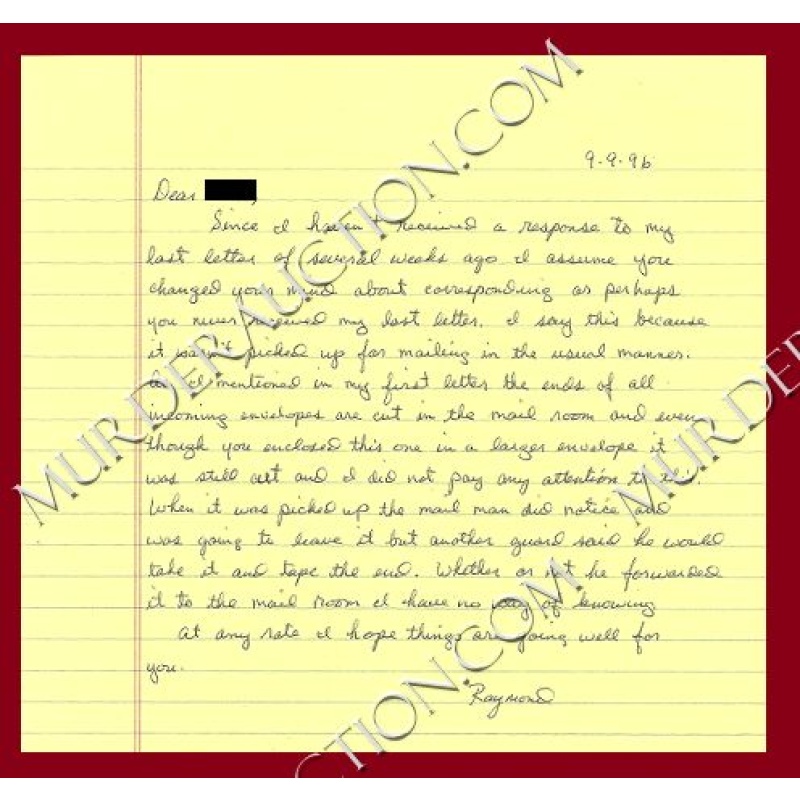 9-9-96
Dear
Since I haven't received a response to my
last letter of several weeks ago I assume you
changed your mind about corresponding or perhaps
you never received my last letter. I say this because
it wasn't picked up for mailing in the usual manner.
As I mentioned in my first letter the ends of all
incoming envelopes are cut in the mail room and even
though you enclosed this one in a larger envelope it
was still cut and I did not pay any attention to this.
When it was picked up the mail man did notice and
was going to leave it but another guard said he would
take it and tape the end. Whether or not he forwarded
it to the mail room I have no way of knowing.
At any rate I hope things are going well for
you.
Raymond
MURDERAUCTION.COM
MURDER
CTION.COM